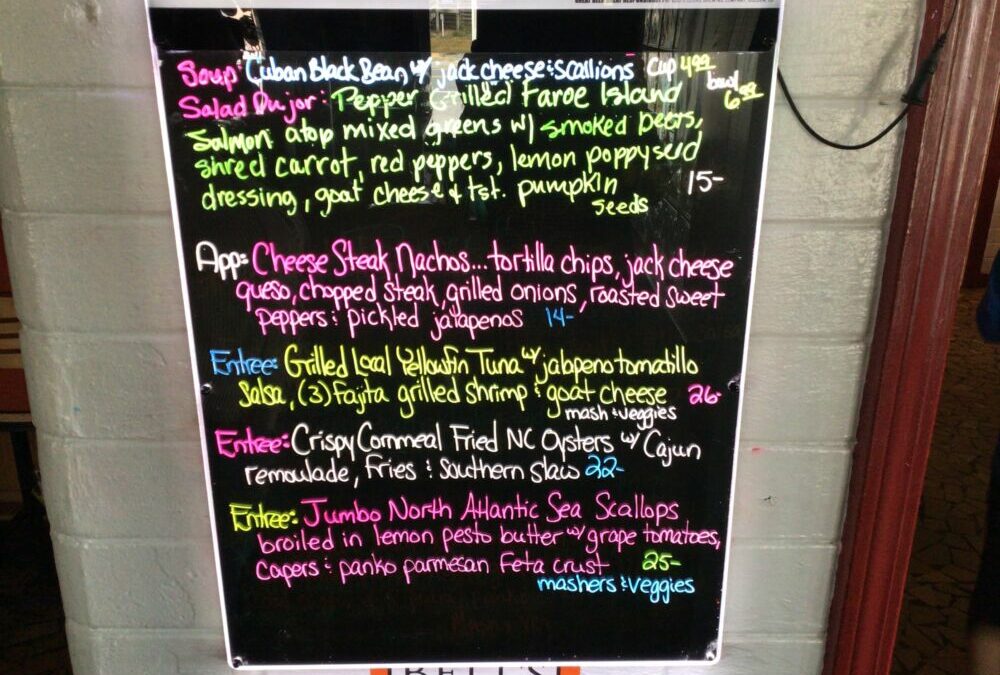 Soup: Cuban Black Bean w/ jack cheese & scallions cup 4.99 bowl 6.99
Salad Dujor: Pepper Grilled Faroe Island
Salmon atop mixed greens w/ smoked beets,
shred carrot, red peppers, lemon poppyseed
dressing, goat cheese & tst. pumpkin seeds 15-
App: Cheese Steak Nachos... tortilla chips, jack cheese
queso, chopped steak, grilled onions, roasted sweet
peppers & pickled jalapenos 14-
Entree: Grilled Local Yellowfin Tuna w/ jalapeno tomatillo
Salsa, (3) Fajita grilled shrimp & goat cheese 26-
mash & veggies
Entree: Crispy Cornmeal Fried NC Oysters w/ Cajun
remoulade, Fries & Southern Slaw 22-
Entree: Jumbo North Atlantic Sea Scallops
broiled in lemon pesto butter w/ grape tomatoes,
capers & panko parmesan Feta crust 25-
mashers & veggies
BELL'S